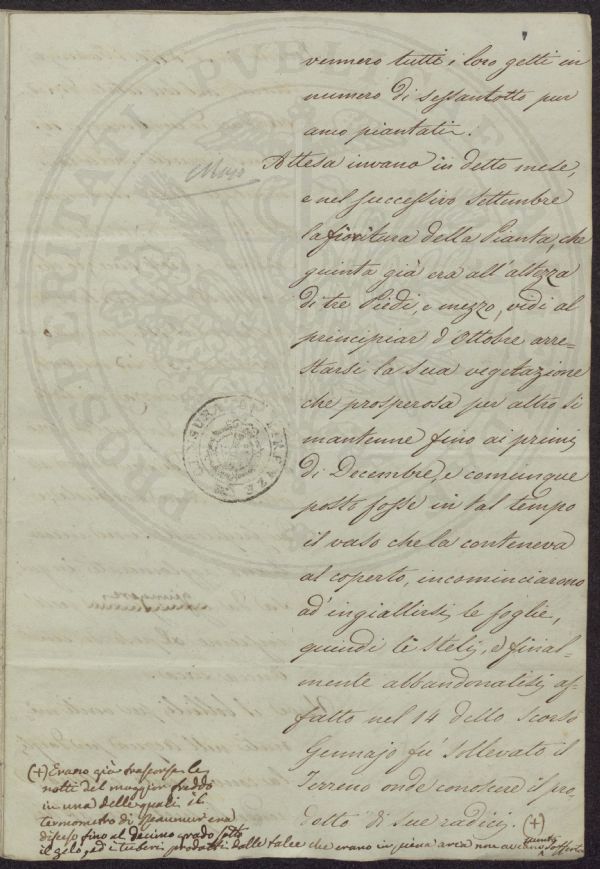 vennero tutti i loro getti in
numero di sessantotto pur
anco piantati.
Attesa invano in detto mese,
e nel successivo Settembre
la fioritura della Pianta, che
giunta già era all'altezza
di tre Piedi, e mezzo, vidi al
principiar d'Ottobre arre=
starsi la sua vegetazione
che prosperosa per altro si
mantenne fino ai primi
di Decembre, e comunque
posto fosse in tal tempo
il vaso che la conteneva
al coperto, incominciarono
ad ingiallirsi le foglie,
quindi li steli, e final=
mente abbandonatisi af=
fatto nel 14 dello scorso
Gennajo fù sollevato il
Terreno onde conoscere il pro=
dotto di sue radici. (+)
(+) Erano già trascorse le
notti del maggior freddo
in una delle quali il
termometro di Reaumur era
disceso fino al decimo grado sotto
il gelo, ed i tuberi prodotti dalle talee che erano in piena aria non avevano punto sofferto
CENSURA DI FIRENZE
PROSPERITATI PUBLICAE